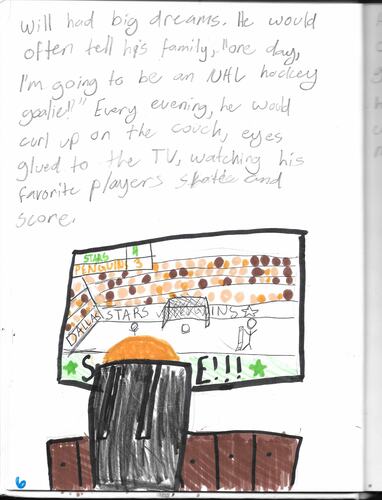 will had big dreams. He would
often tell his family, "one day,
I'm going to be an NHL hockey
goalie!" Every evening, he would
curl up on the couch, eyes
glued to the TV, watching his
favorite players skate and
score.
STARS 4
PENGUINS 3
STARS WINS
DALLAS
S E!!!
6